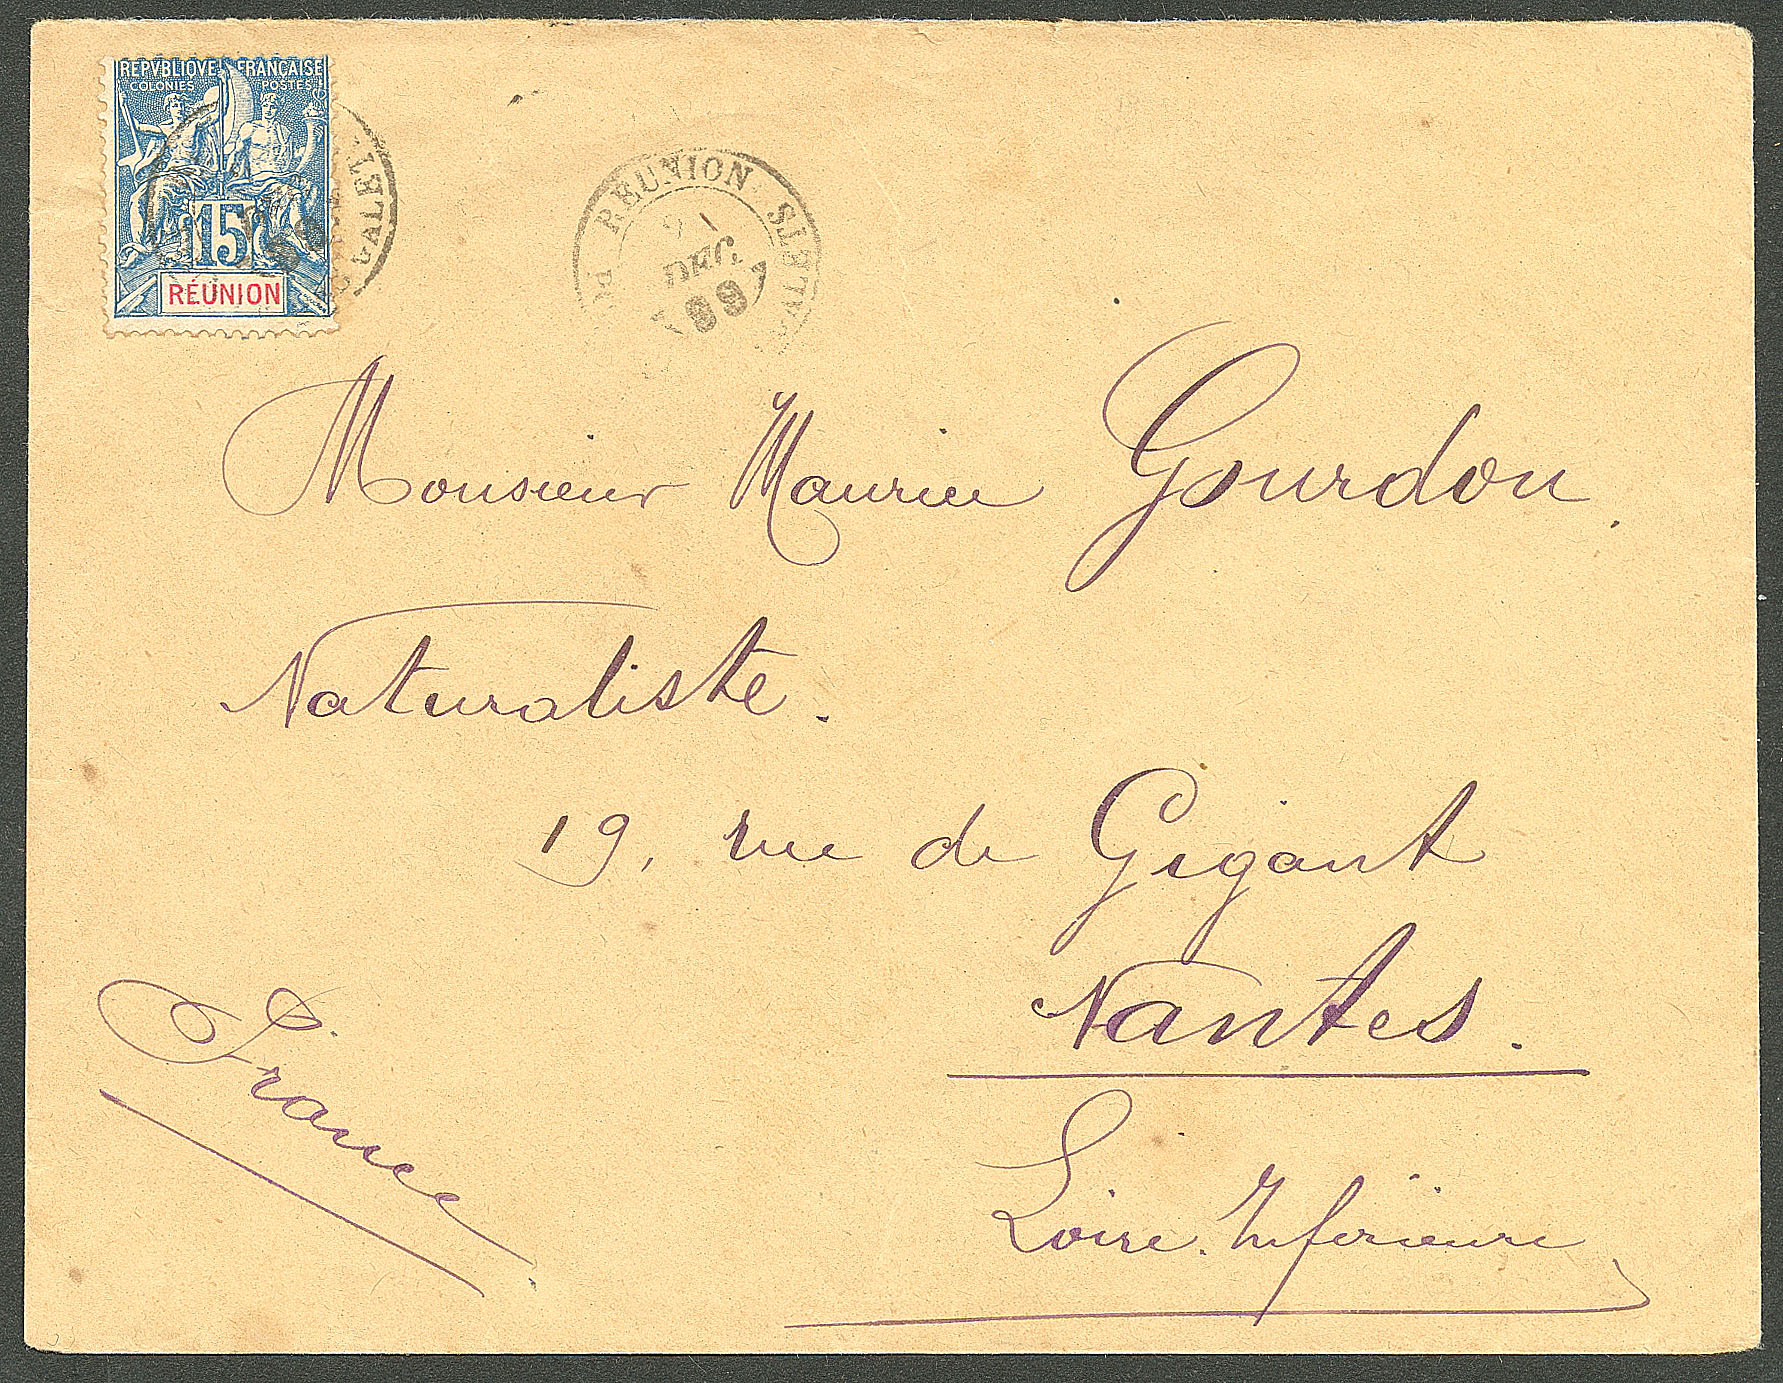 REPVBLIQVE FRANÇAISE
COLONIES POSTES
15
RÉUNION
RÉUNION
DEC.
99
Monsieur Maurice Gourdon.
Naturaliste.
19, rue de Gigant
Nantes.
France
Loire-Inférieure